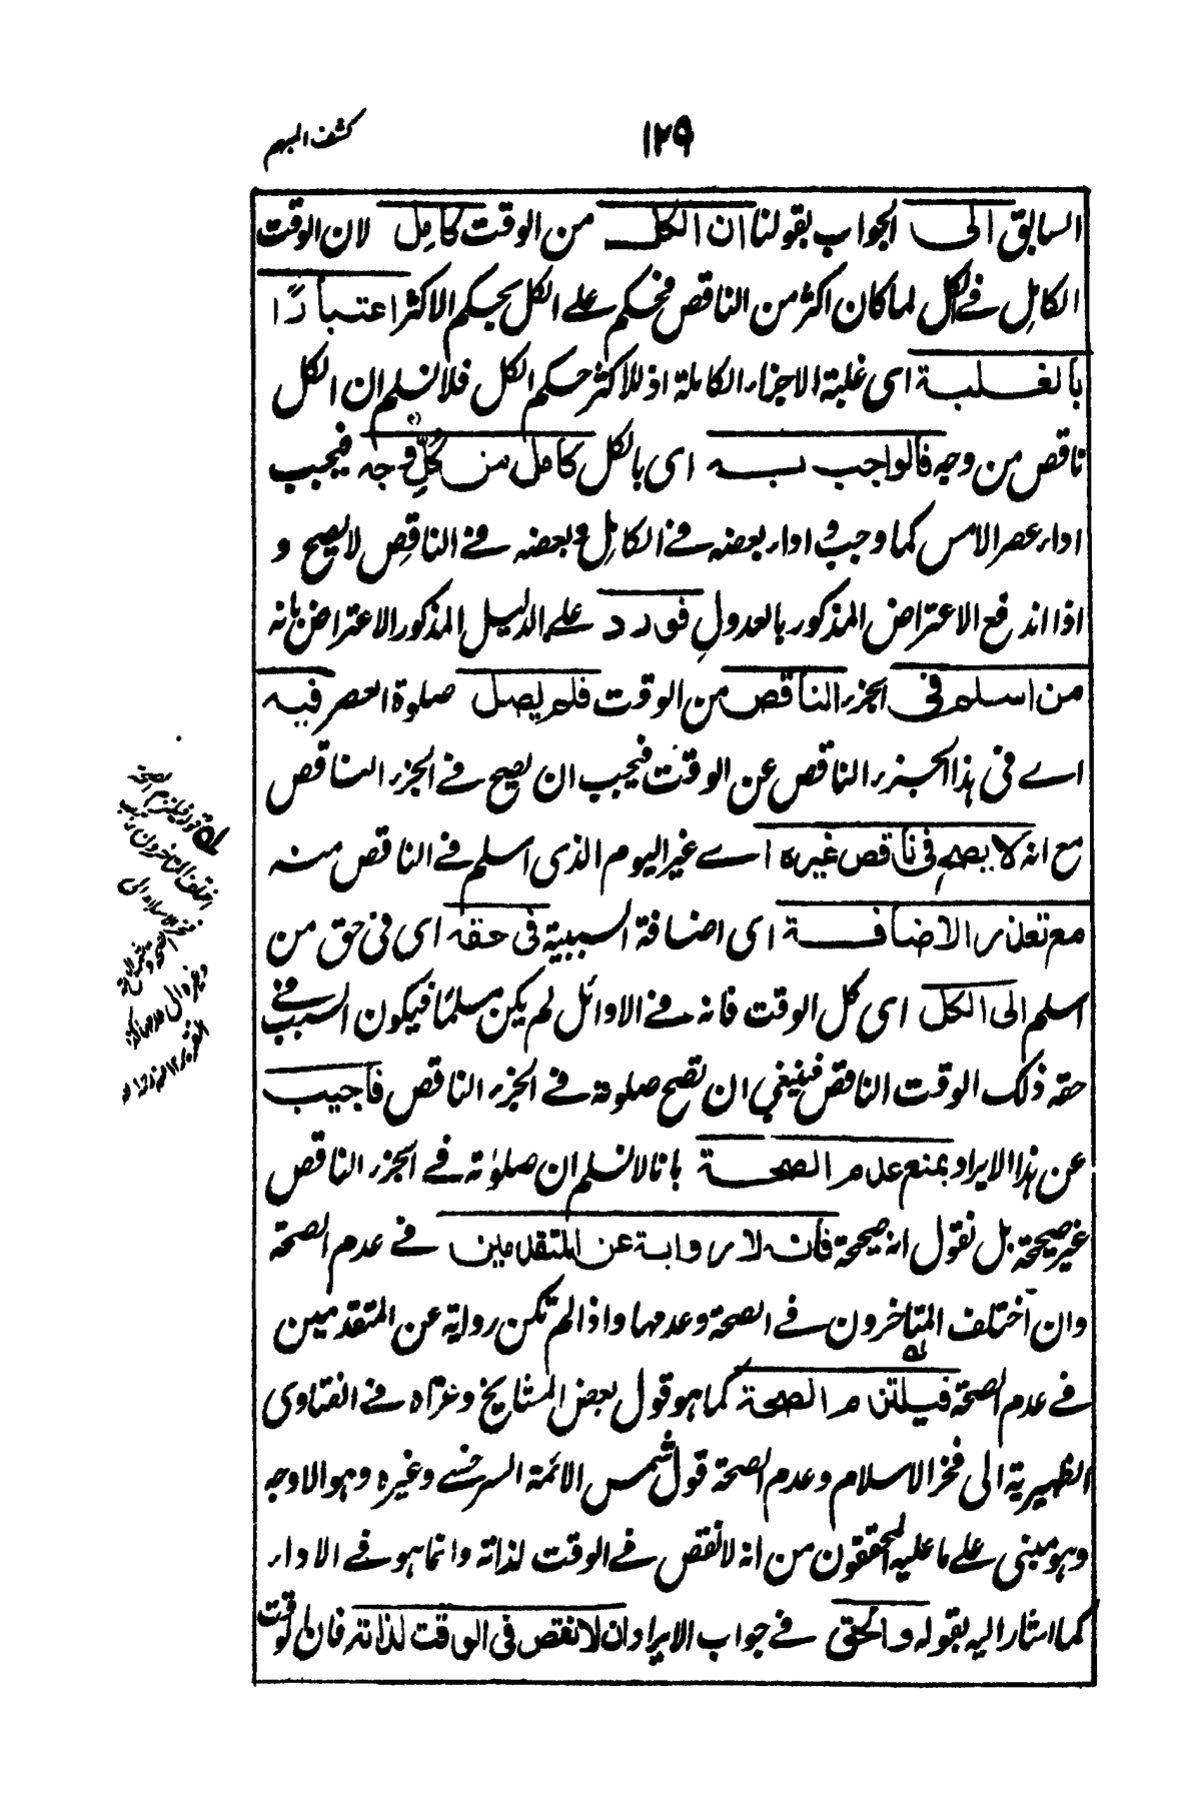 ١٢٩
كشف المبهم
السابق الى الجواب بقولنا ان الكل من الوقت كامل لان الوقت
الكامل فى الكل لما كان اكثر من الناقص فيحكم على الكل بحكم الاكثر اعتبارًا
بالغلبة اى غلبة الاجزاء الكاملة اذ للاكثر حكم الكل فلا نسلم ان الكل
ناقص من وجه فالواجب به اى بالكل كامل من كل وجه فيجب
اداء عصر الامس كما وجب و اداء بعضه فى الكامل و بعضه فى الناقص لا يصح و
اذا اندفع الاعتراض المذكور بالعدول فورد على الدليل المذكور الاعتراض بانه
من اسلم فى الجزء الناقص من الوقت فلم يصل صلوة العصر فيه
اى فى هذا الجزء الناقص عن الوقت فيجب ان يصح فى الجزء الناقص
مع انه لا يصح فى ناقص غيره اى غير اليوم الذى اسلم فى الناقص منه
مع تعذر الاضافة اى اضافة السببية فى حقه اى فى حق من
اسلم الى الكل اى كل الوقت فانه فى الاوائل لم يكن مسلمًا فيكون السبب فى
حقه ذلك الوقت الناقص فينبغى ان تصح صلوته فى الجزء الناقص فاجيب
عن هذا الايراد بمنع عدم الصحة بانا لا نسلم ان صلوته فى الجزء الناقص
غير صحيحة بل نقول انه صحيحة فانه لا رواية عن المتقدمين فى عدم الصحة
وان اختلف المتاخرون فى الصحة وعدمها واذا لم تكن رواية عن المتقدمين
فى عدم الصحة فيلتزم الصحة كما هو قول بعض المشايخ وعزاه فى الفتاوى
الظهيرية الى فخر الاسلام وعدم الصحة قول شمس الائمة السرخسى وغيره وهو الاوجه
وهو مبنى على ما عليه المحققون من انه لا نقص فى الوقت لذاته وانما هو فى الاداء
كما اشار اليه بقوله والحق فى جواب الايراد ان لا نقص فى الوقت لذاته فان الوقت
له قوله فيلتزم الصحة
اختلف المتاخرون
فخر الاسلام الى
وغيره الى